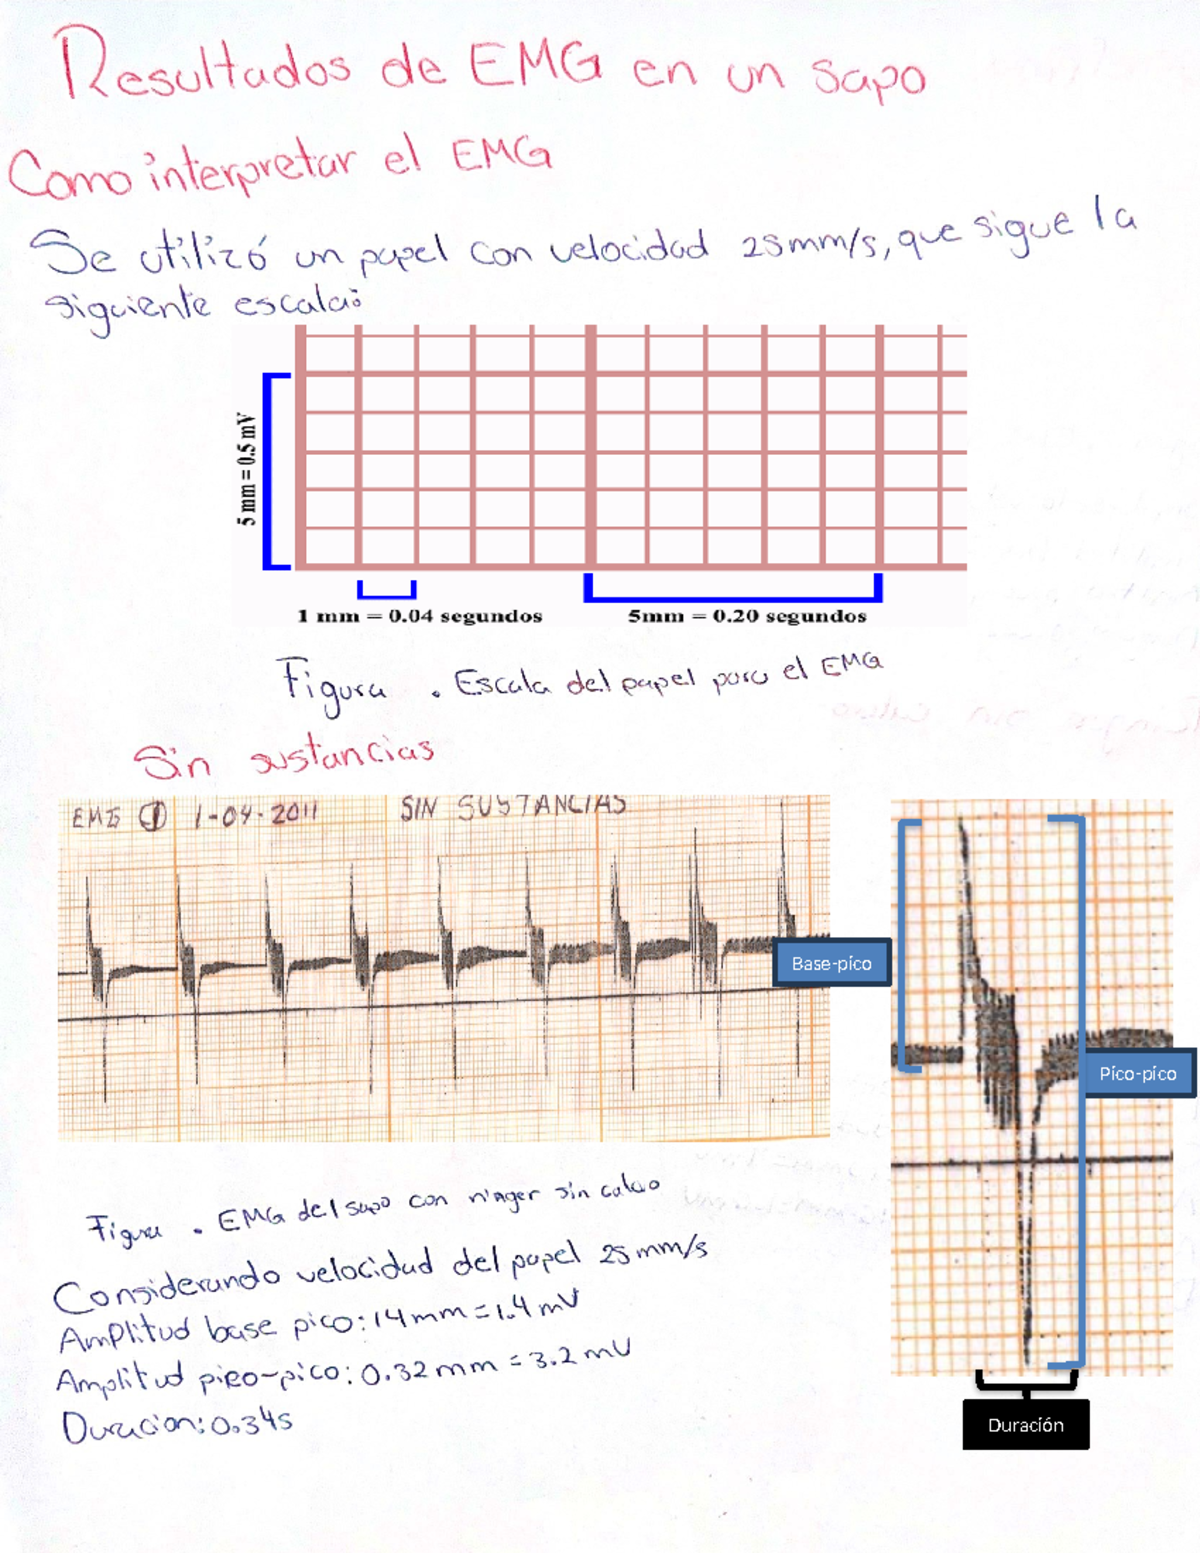 Resultados de EMG en un sapo
Como interpretar el EMG
Se utilizó un papel con velocidad 25mm/s, que sigue la
siguiente escala:
5 mm = 0.5 mV
1 mm = 0.04 segundos
5mm = 0.20 segundos
Figura . Escala del papel para el EMG
Sin sustancias
EMG ① 1-04-2011 SIN SUSTANCIAS
Base-pico
Pico-pico
Duración
Figura . EMG del sapo con ringer sin calcio
Considerando velocidad del papel 25mm/s
Amplitud base pico: 14mm = 1.4 mV
Amplitud pico-pico: 0.32 mm = 3.2 mV
Duracion: 0.34s